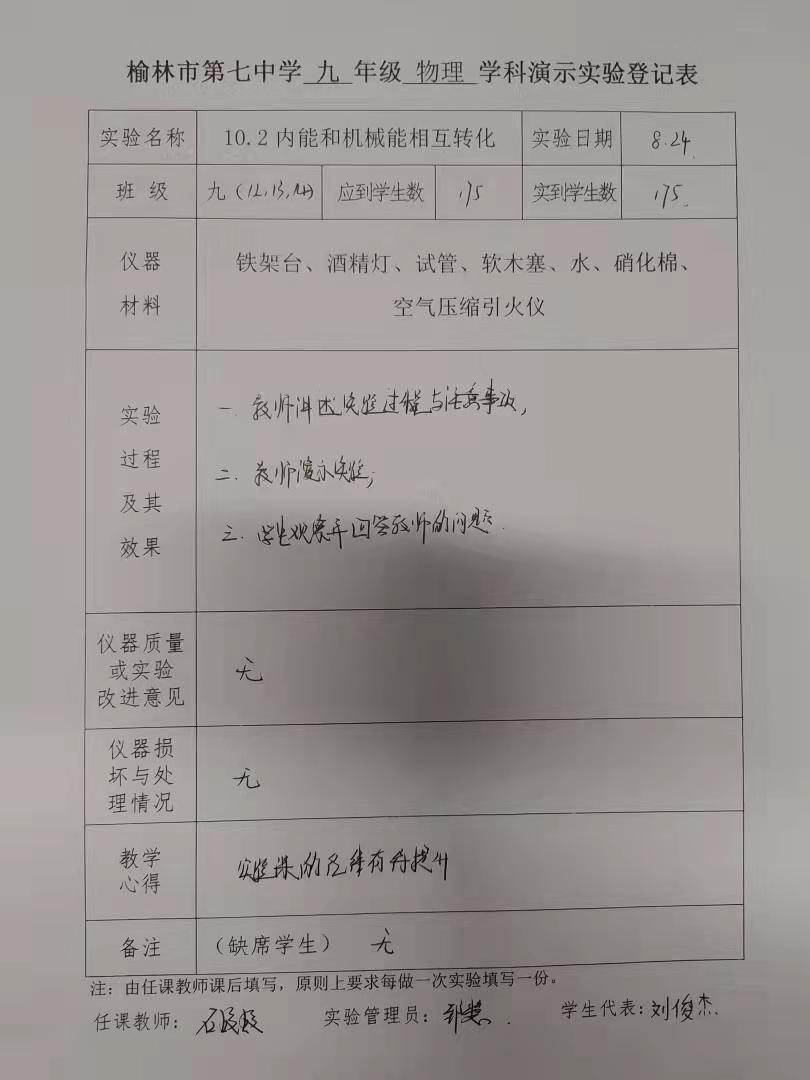 榆林市第七中学 九 年级 物理 学科演示实验登记表
实验名称 10.2内能和机械能相互转化 实验日期 8.24.
班 级 九(12,13,14) 应到学生数 175 实到学生数 175.
仪器
材料
铁架台、酒精灯、试管、软木塞、水、硝化棉、
空气压缩引火仪
实验
过程
及其
效果
一. 教师讲述实验过程与注意事项,
二. 教师演示实验;
三. 学生观察并回答教师的问题.
仪器质量
或实验
改进意见
无
仪器损
坏与处
理情况
无
教学
心得
实验课的 有待提升
备注 (缺席学生) 无
注:由任课教师课后填写,原则上要求每做一次实验填写一份。
任课教师: 实验管理员: 学生代表:刘俊杰.